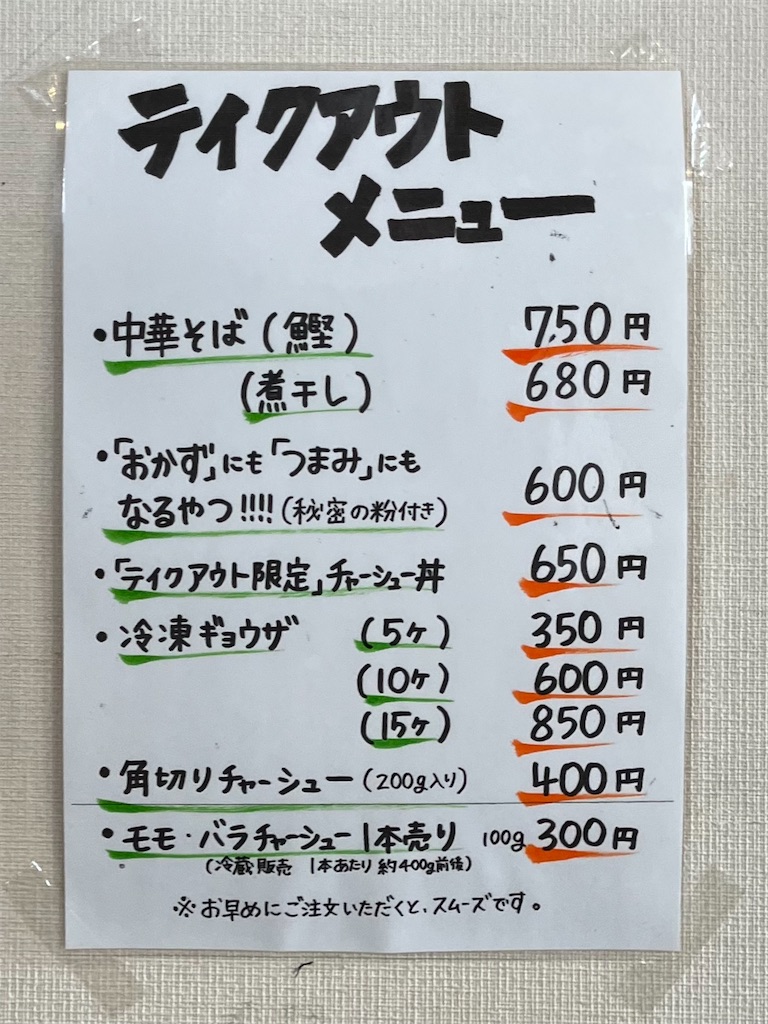 テイクアウト
メニュー
・中華そば(鰹) 750円
(煮干し) 680円
・「おかず」にも「つまみ」にも
なるやつ!!!!(秘密の粉付き) 600円
・「テイクアウト限定」チャーシュー丼 650円
・冷凍ギョウザ (5ヶ) 350円
(10ヶ) 600円
(15ヶ) 850円
・角切りチャーシュー(200g入り) 400円
・モモ・バラチャーシュー1本売り 100g 300円
(冷蔵販売 1本あたり 約400g前後)
※お早めにご注文いただくと、スムーズです。